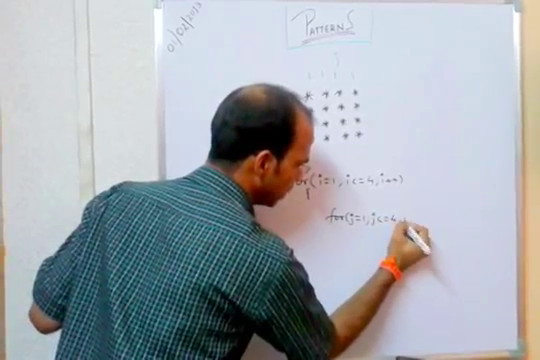 01/02/2023
PATTERNS
j
* * * *
* * * *
* * * *
* * * *
for(i=1, i<=4, i++)
{
for(j=1, j<=4,